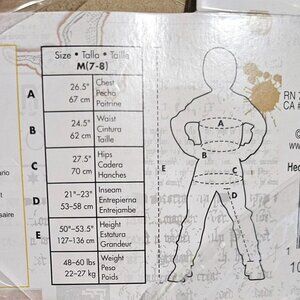 Size • Talla • Taille
M(7-8)
A
26.5"
67 cm
Chest
Pecho
Poitrine
B
24.5"
62 cm
Waist
Cintura
Taille
C
27.5"
70 cm
Hips
Cadera
Hanches
D
21"-23"
53-58 cm
Inseam
Entrepierna
Entrejambe
E
50"-53.5"
127-136 cm
Height
Estatura
Grandeur
48-60 lbs
22-27 kg
Weight
Peso
Poids
A
B
C
D
E
RN 7
CA #
©
www.
Hec
1
10
ario
t
saire